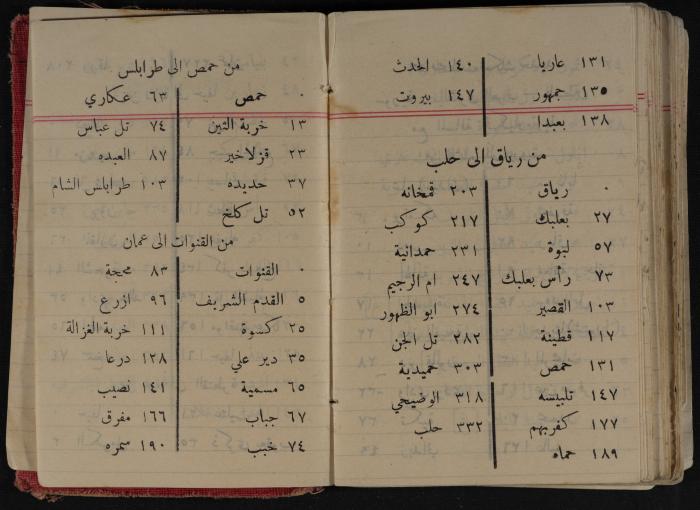 ١٣١ عاريا ١٤٠ الحدث
١٣٥ جمهور ١٤٧ بيروت
١٣٨ بعبدا
من رياق الى حلب
٠ رياق ٢٠٣ قمخانه
٢٧ بعلبك ٢١٧ كوكب
٥٧ لبوة ٢٣١ حمدانية
٧٣ رأس بعلبك ٢٤٧ ام الرجيم
١٠٣ القصير ٢٧٤ ابو الظهور
١١٧ قطينة ٢٨٢ تل الجن
١٣١ حمص ٣٠٣ حميدية
١٤٧ تلبيسه ٣١٨ الوضيحي
١٧٧ كفربهم ٣٣٢ حلب
١٨٩ حماه
من حمص الى طرابلس
٠ حمص ٦٣ عكاري
١٣ خربة التين ٧٤ تل عباس
٢٣ قزلاخير ٨٧ العبده
٣٧ حديده ١٠٣ طرابلس الشام
٥٢ تل كلخ
من القنوات الى عمان
٠ القنوات ٨٣ محجة
٥ القدم الشريف ٩٦ ازرع
٢٥ كسوة ١١١ خربة الغزالة
٣٥ دير علي ١٢٨ درعا
٦٥ مسمية ١٤١ نصيب
٦٧ جباب ١٦٦ مفرق
٧٤ خبب ١٩٠ سمره